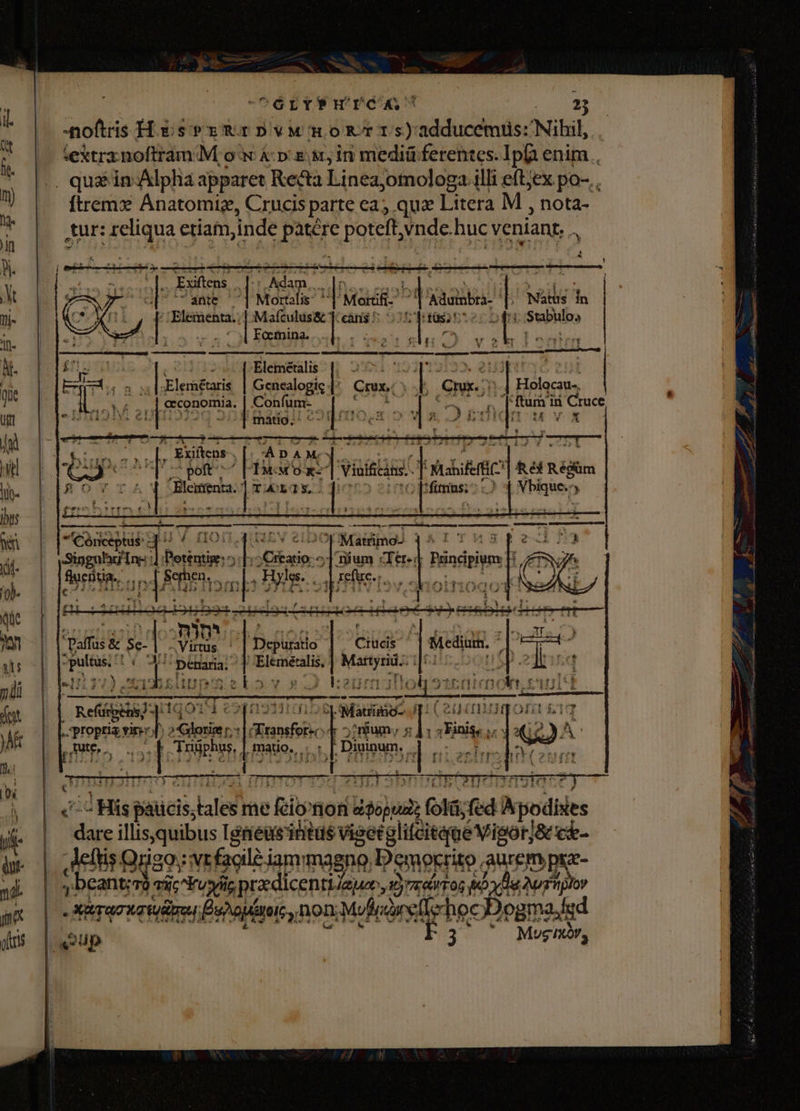 23
nostris HESPERIDVM HORTIS) adducemus: Nihil,
extra nostram MONADEM, in mediū ferentes. Ipsa enim
quæ in Alpha apparet Recta Linea, omologa illi est, ex po-
stremæ Anatomiæ, Crucis parte ea, quæ Litera M, nota-
tur: reliqua etiam, inde patêre potest, vnde huc veniant.
Existens ante Elementa. Adam Mortalis Masculus& Fœmina. Mortifi- cans Adumbra- tus Natus in Stabulo.
Elemētaris œconomia. Elemētalis Genealogiç Consum- matio. Crux. Crux. Holocau- stum in Cruce
Existens post Elementa. ADAM IMMO R- TALIS. Viuificans. Manifestiſ- simus. Rex Regum Vbique.
Conceptus Singulari In- fluentia. Potentiæ Semen. Creatio Hyles. Matrimo- nium Ter- restre. Principium
Passus & Se- pultus. Virtus Denaria. Depuratio Elemētalis. Crucis Martyriū. Medium.
Resurgens, propria vir- tute. Gloriæ Triūphus. Transfor- matio. Matrimo- nium Diuinum. Finis.
His paucis, tales me scio non ἀφορμὰς solū, sed Apodixes
dare illis, quibus Igneus intus viget glifcitque Vigor, & cœ-
lestis Origo: vt facilè iam magno Democrito aurem præ-
beant: τὸ τῆς Ψυχῆς prædicenti
non
hoc Dogma, sed
3